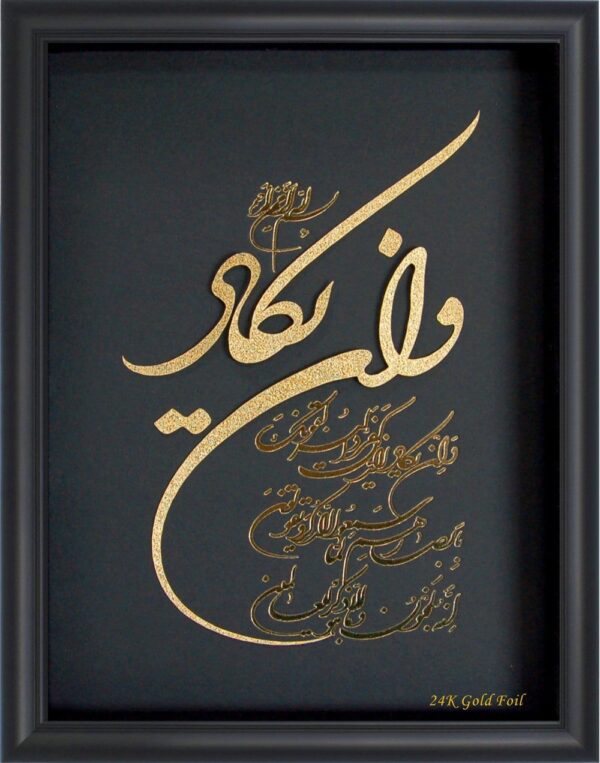 بسم الله الرحمن الرحیم
وان یکاد
وَاِن یکاد الذین کفروا لیزلقونکَ
بابصارهم لما سمعوا الذکر و یقولونَ
اِنَّه لمجنون و ما هو الا ذکر للعالمین
24K Gold Foil